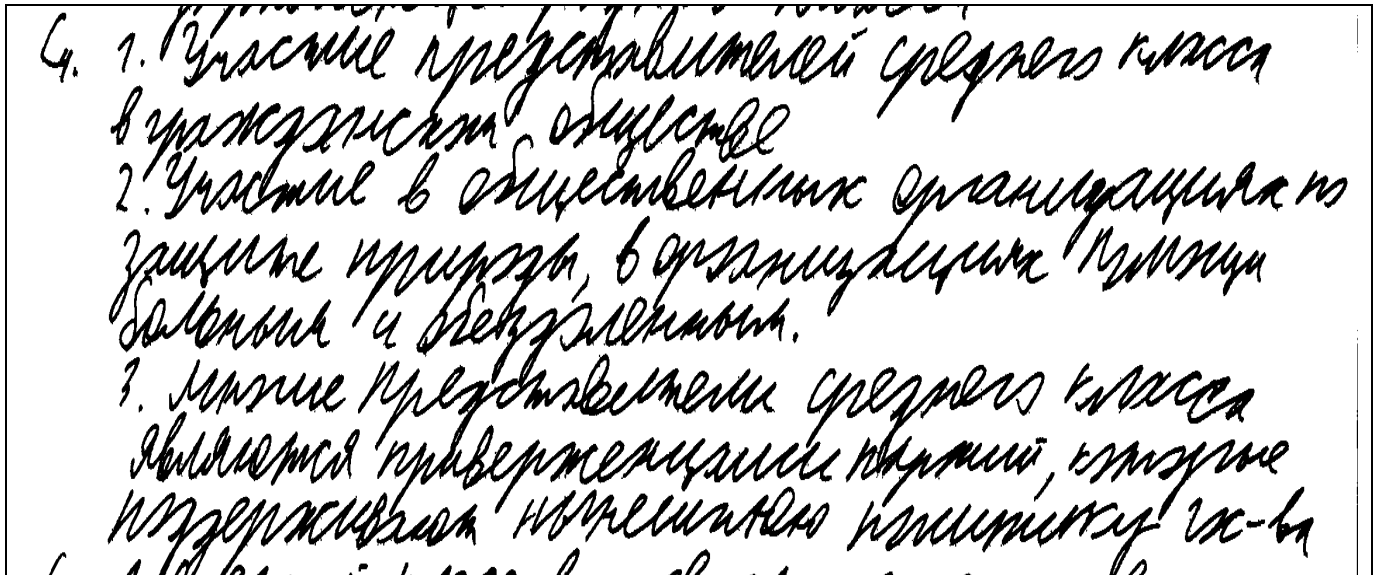 С4. 1. Участие представителей среднего класса
в гражданском обществе
2. Участие в общественных организациях по
защите природы, в организациях помощи
больным и обездоленным.
3. Многие представители среднего класса
являются приверженцами партий, которые
поддерживают нынешнюю политику гос-ва